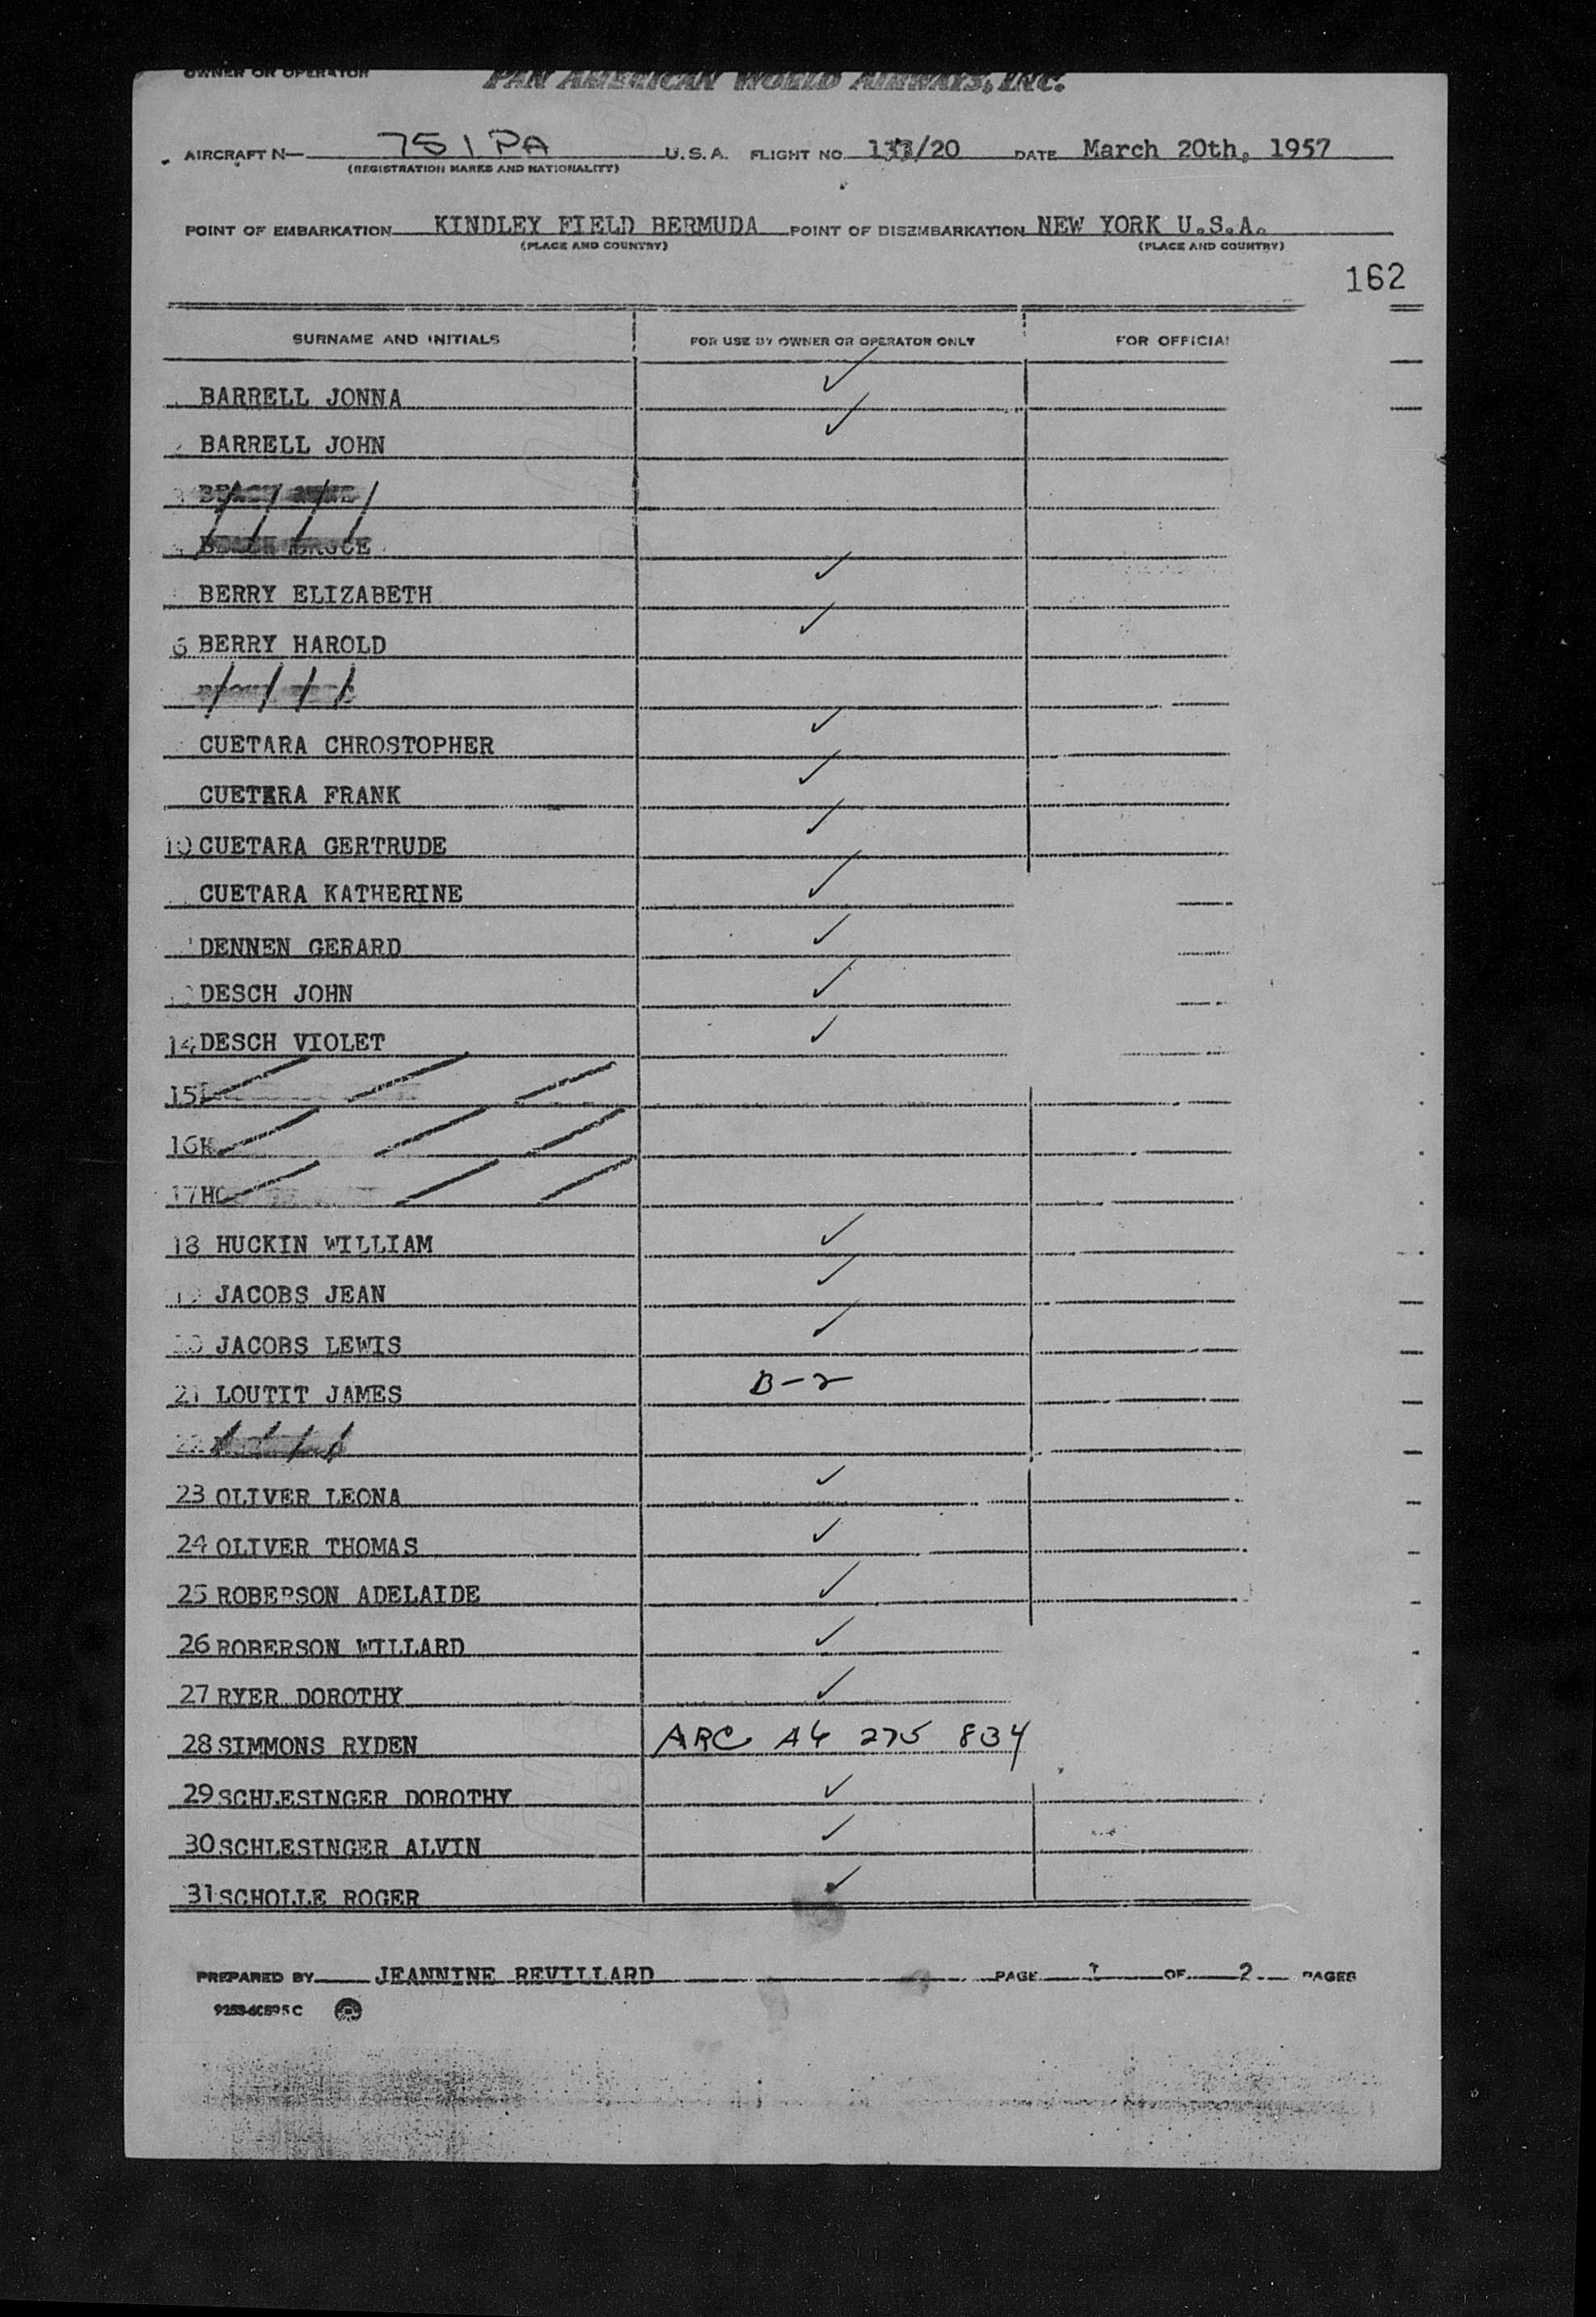 OWNER OR OPERATOR PAN AMERICAN WORLD AIRWAYS, INC.
AIRCRAFT N— 751PA U.S.A. FLIGHT NO /20 DATE March 20th, 1957
(REGISTRATION MARKS AND NATIONALITY)
POINT OF EMBARKATION KINDLEY FIELD BERMUDA POINT OF DISEMBARKATION NEW YORK U.S.A.
(PLACE AND COUNTRY) (PLACE AND COUNTRY)
162
SURNAME AND INITIALS FOR USE BY OWNER OR OPERATOR ONLY FOR OFFICIAL
BARRELL JONNA ✓
BARRELL JOHN ✓
BERRY ELIZABETH ✓
6 BERRY HAROLD ✓
CUETARA CHROSTOPHER ✓
CUETARA FRANK ✓
10 CUETARA GERTRUDE ✓
CUETARA KATHERINE ✓
DENNEN GERARD ✓
DESCH JOHN ✓
14 DESCH VIOLET ✓
15
16
17
18 HUCKIN WILLIAM ✓
19 JACOBS JEAN ✓
20 JACOBS LEWIS ✓
21 LOUTIT JAMES B-2
22
23 OLIVER LEONA ✓
24 OLIVER THOMAS ✓
25 ROBERSON ADELAIDE ✓
26 ROBERSON WILLARD ✓
27 RYER DOROTHY ✓
28 SIMMONS RYDEN ARC A6 275 834
29 SCHLESINGER DOROTHY ✓
30 SCHLESINGER ALVIN ✓
31 SCHOLLE ROGER ✓
PREPARED BY JEANNINE REVILLARD PAGE 1 OF 2 PAGES